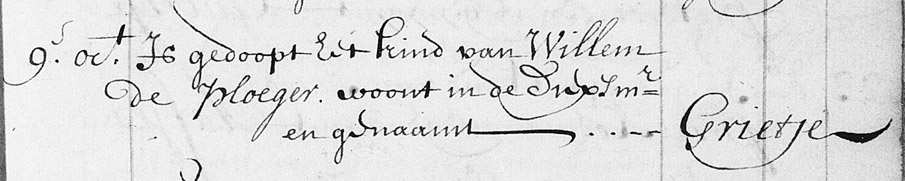 9.s oct. Is gedoopt het kind van Willem
de Ploeger. woont in de Dixsmr
en genaamt ..-- Grietje